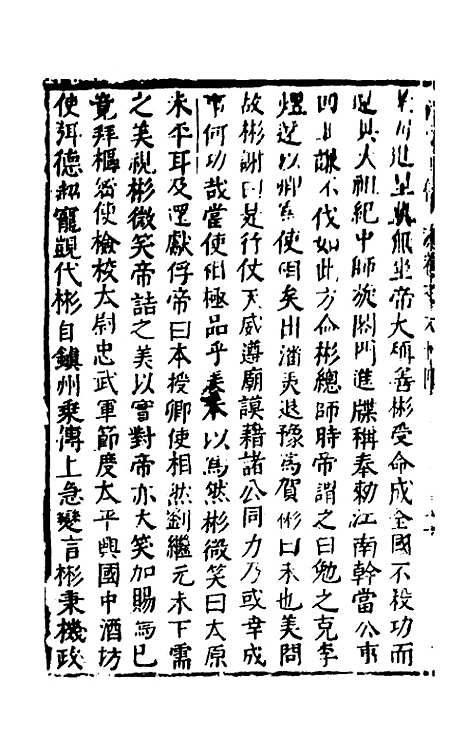 帝大称善彬受命成全國不殺功而
太祖紀中師旋閤門進牒稱奉勑江南幹當公事
囘其謙不伐如此方命彬總師時帝謂之曰勉之克李
煜还以卿為使相矣出潘美退豫為賀彬曰未也美問
故彬謝曰是行仗天威遵廟謨藉諸公同力乃或幸成
何功哉當使相極品乎美 以為然彬微笑曰太原
未平耳及還獻俘帝曰本授卿使相然劉繼元未下需
之美視彬微笑帝詰之美以實對帝亦大笑加賜焉已
竟拜樞密使檢校太尉忠武軍節度太平興國中酒坊
使弭德超寵覬代彬自鎮州乘傳上急變言彬秉機政